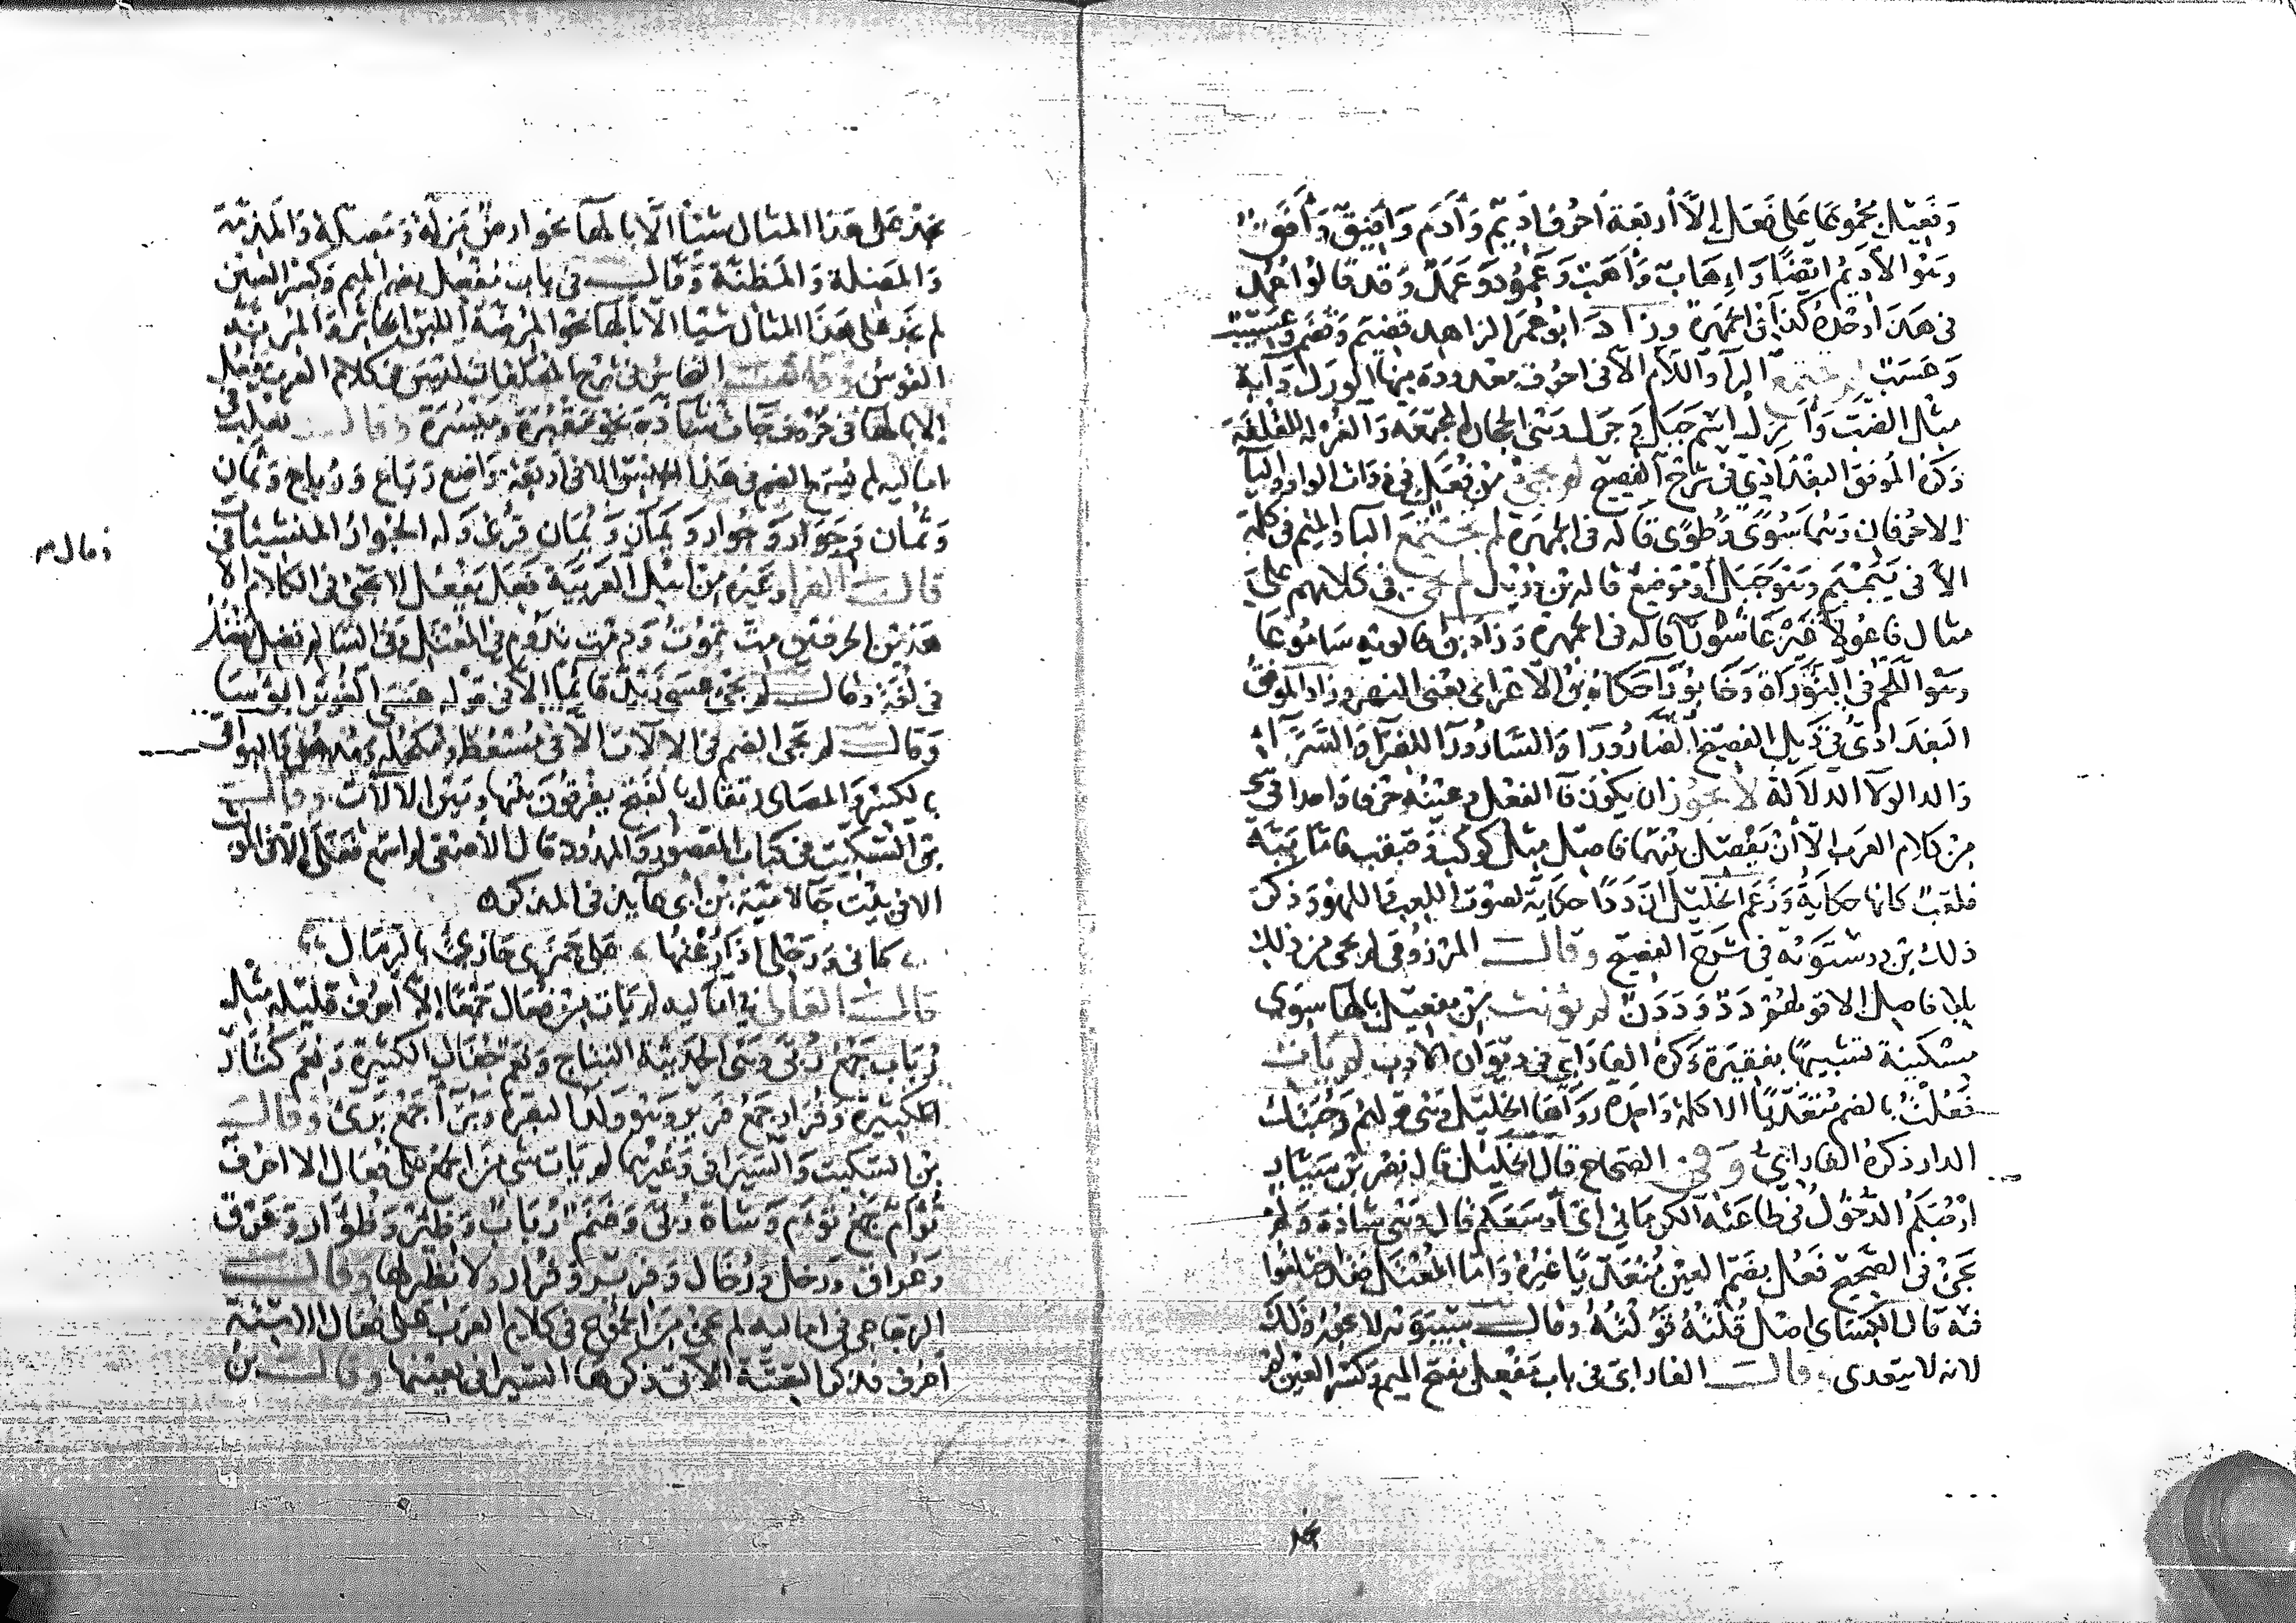 وَفَعِيْل مجموعا على فَعَل إلّا أربعة احرف اَديم وَأَدَم وَأَفيق وَأَفَق
وهو الأديم ايضًا وَإهَاب وَأَهَب وَعَمُود وَعَمَد وقد قالوا عُمُد
في هذا أدخله كذا في الجمهرة وزاد ابو عمر الزاهد قضيم وقضم وعسيب
وَعَسَب لم يجتمع الرآ واللام الا في احرف معدودة منها الورل دابة
مثل الضب وَأُرُل اسم جبل وجَرَل وهي الحجارة المجتمعة وَالغُرْلة القلفة
ذكره الموفق البغدادي في شرح الفصيح لم يجئ من فُعَل في ذوات الواو واليآ
إلا حرفان وهما سُوًى وَطُوًى قاله في الجمهرة لم يجتمع البا والميم في كلمة
الا في يَبَمْبَم وهو جَبَل أو موضع قاله بن دريد لم يجئ في كلامهم على
مثال فاعُولآء غير عَاشُورآ قاله في الجمهرة وزاد بن خالويه سَامُوعَا
وهو اللحم في التوراة وَخَابُورَآ حكاه بن الأعرابي يعني النهر وزاد الموفق
البغدادي في ذيل الفصيح الضارورا وَالسَّارُورا للضرآ والسرآ
وَالدالولآ الدلالة لا يجوز ان يكون فآ الفعل وعينه حرفا واحدا في شي
من كلام العرب إلّا أنْ يفصل بينهما فاصل مثل كوكب وقيقب فاما بَبّة
فلقب كانها حكاية وَزَعَم الخليل ان دَدًا حكاية لصوت اللعب واللهو وذكر
ذلك بن درستويه في شرح الفصيح وقال المرزوقي لم يجئ من ذلك
بلا فاصل الا قولهم دَدٌ وَدَدَن لم يؤنث من مفعيل بالها سوى
مسكينة تشبيها بفقيرة ذكره الفارابي في ديوان الادب لم يات
فَعُلْتُ بالضم متعديًا الا كلمة واحدة رواها الخليل وهي قولهم رَحُبَتك
الدار ذكره الفارابي وفي الصحاح قال الخليل قال نصر بن سيار
ارحبكم الدخول في طاعة الكرماني اي أوسعكم قال وهي شاذة ولم
يجئ في الصحيح فَعُل بضم العين متعديًا غيره وَاما المعتل فقد اختلفوا
فيه قال الكسائي اصل قُلْتُهُ قَوُلْتُهُ وقال سيبويه لا يجوز ذلك
لانه لا يتعدى وقال الفارابي في باب مَفْعِل بفتح الميم وكسر العين لم
نجد
نجد على هذا المثال شيئا الّا بالهآ نحو ارض مَزِلّة وَمَضِلّة وَالمذمّة
وَالمضنة وَالمظنّة وقال في باب مُفْعِل بضم الميم وكسر العين
لم نجد على هذا المثال شيئا الا بالهآ نحو المُرِضّة اللبن الخاثر وَالمُرِنّة
القوس وقال النحاس في شرح المعلقات ليس في كلام العرب مَفْعُل
إلا بالها في حروف جات شاذة نحو مَقْبُرة وميسُرة وقال ثعلب في
اماليه لم يسمع الضم في هذا الجنس الا في اربعة رواضع رَبَاع وَرُباع وثَمان
وَثُمان وَجَوَاد وَجُواد وَيَمَان وَيُمَان قرئ وله الجَوارُ المنشئات
وقال م
قال الفرا وغيره من اهل العربية فَعِل يَفْعُل لا يجئ في الكلام الا
هذين الحرفين مِتّ تموت وَدِمت تدوم في المعتل وفي السالم فضِل يفضُل
في لغة وقال لم يجئ عسى زيدٌ قائما الا في قوله عسى الغوير ابؤسا
وقال لم يجئ الضم في الآلات الا في مُسْعُط ومُكحُلة ومُدهُن والبواقي
بالكسر والمصادر تقال بالفتح يفرقون بينها وبين الآلات وقال
بن السكيت في كتاب المقصور والممدود قال الأصمعي لم اسمع فَعَلَى إلا في المؤنث
الا في بيت جآ لامية بن ابي عايذ في المذكر
كاني وَرَحْلي اذا رُعْتُها على جَمَزَى جازئ بالرمال
قال القالي في آماليه لم يات من فُعَال جمعًا إلا أحرف قليلة مثل
رُبَاب جمع رُبّى وهي الحديثة النتاج ونَعَم جُفَال الكثيرة ونَعَم كُثَار
الكبيرة وفُرار جمع فَرير وهو ولد البقرة وَبُرَآ جمع بَرِئ وقال
بن السكيت والسيرافي وغيرهما لم يات شي من الجمع على فُعال الا احرف
تُؤام جمع توأم وشاة رُبّى وغَنَم رُباب وظِئْر وظُؤار وعَرْق
وعُراق ورَخِل ورُخال وفَرير وفُرار ولا نظير لها وقال
الزجاجي في اماليه لم يجئ من الجموع في كلام العرب على فُعال الا ستة
أحرف فذكر الستة الأتي ذكرها السيرافي بعينها وقال بن